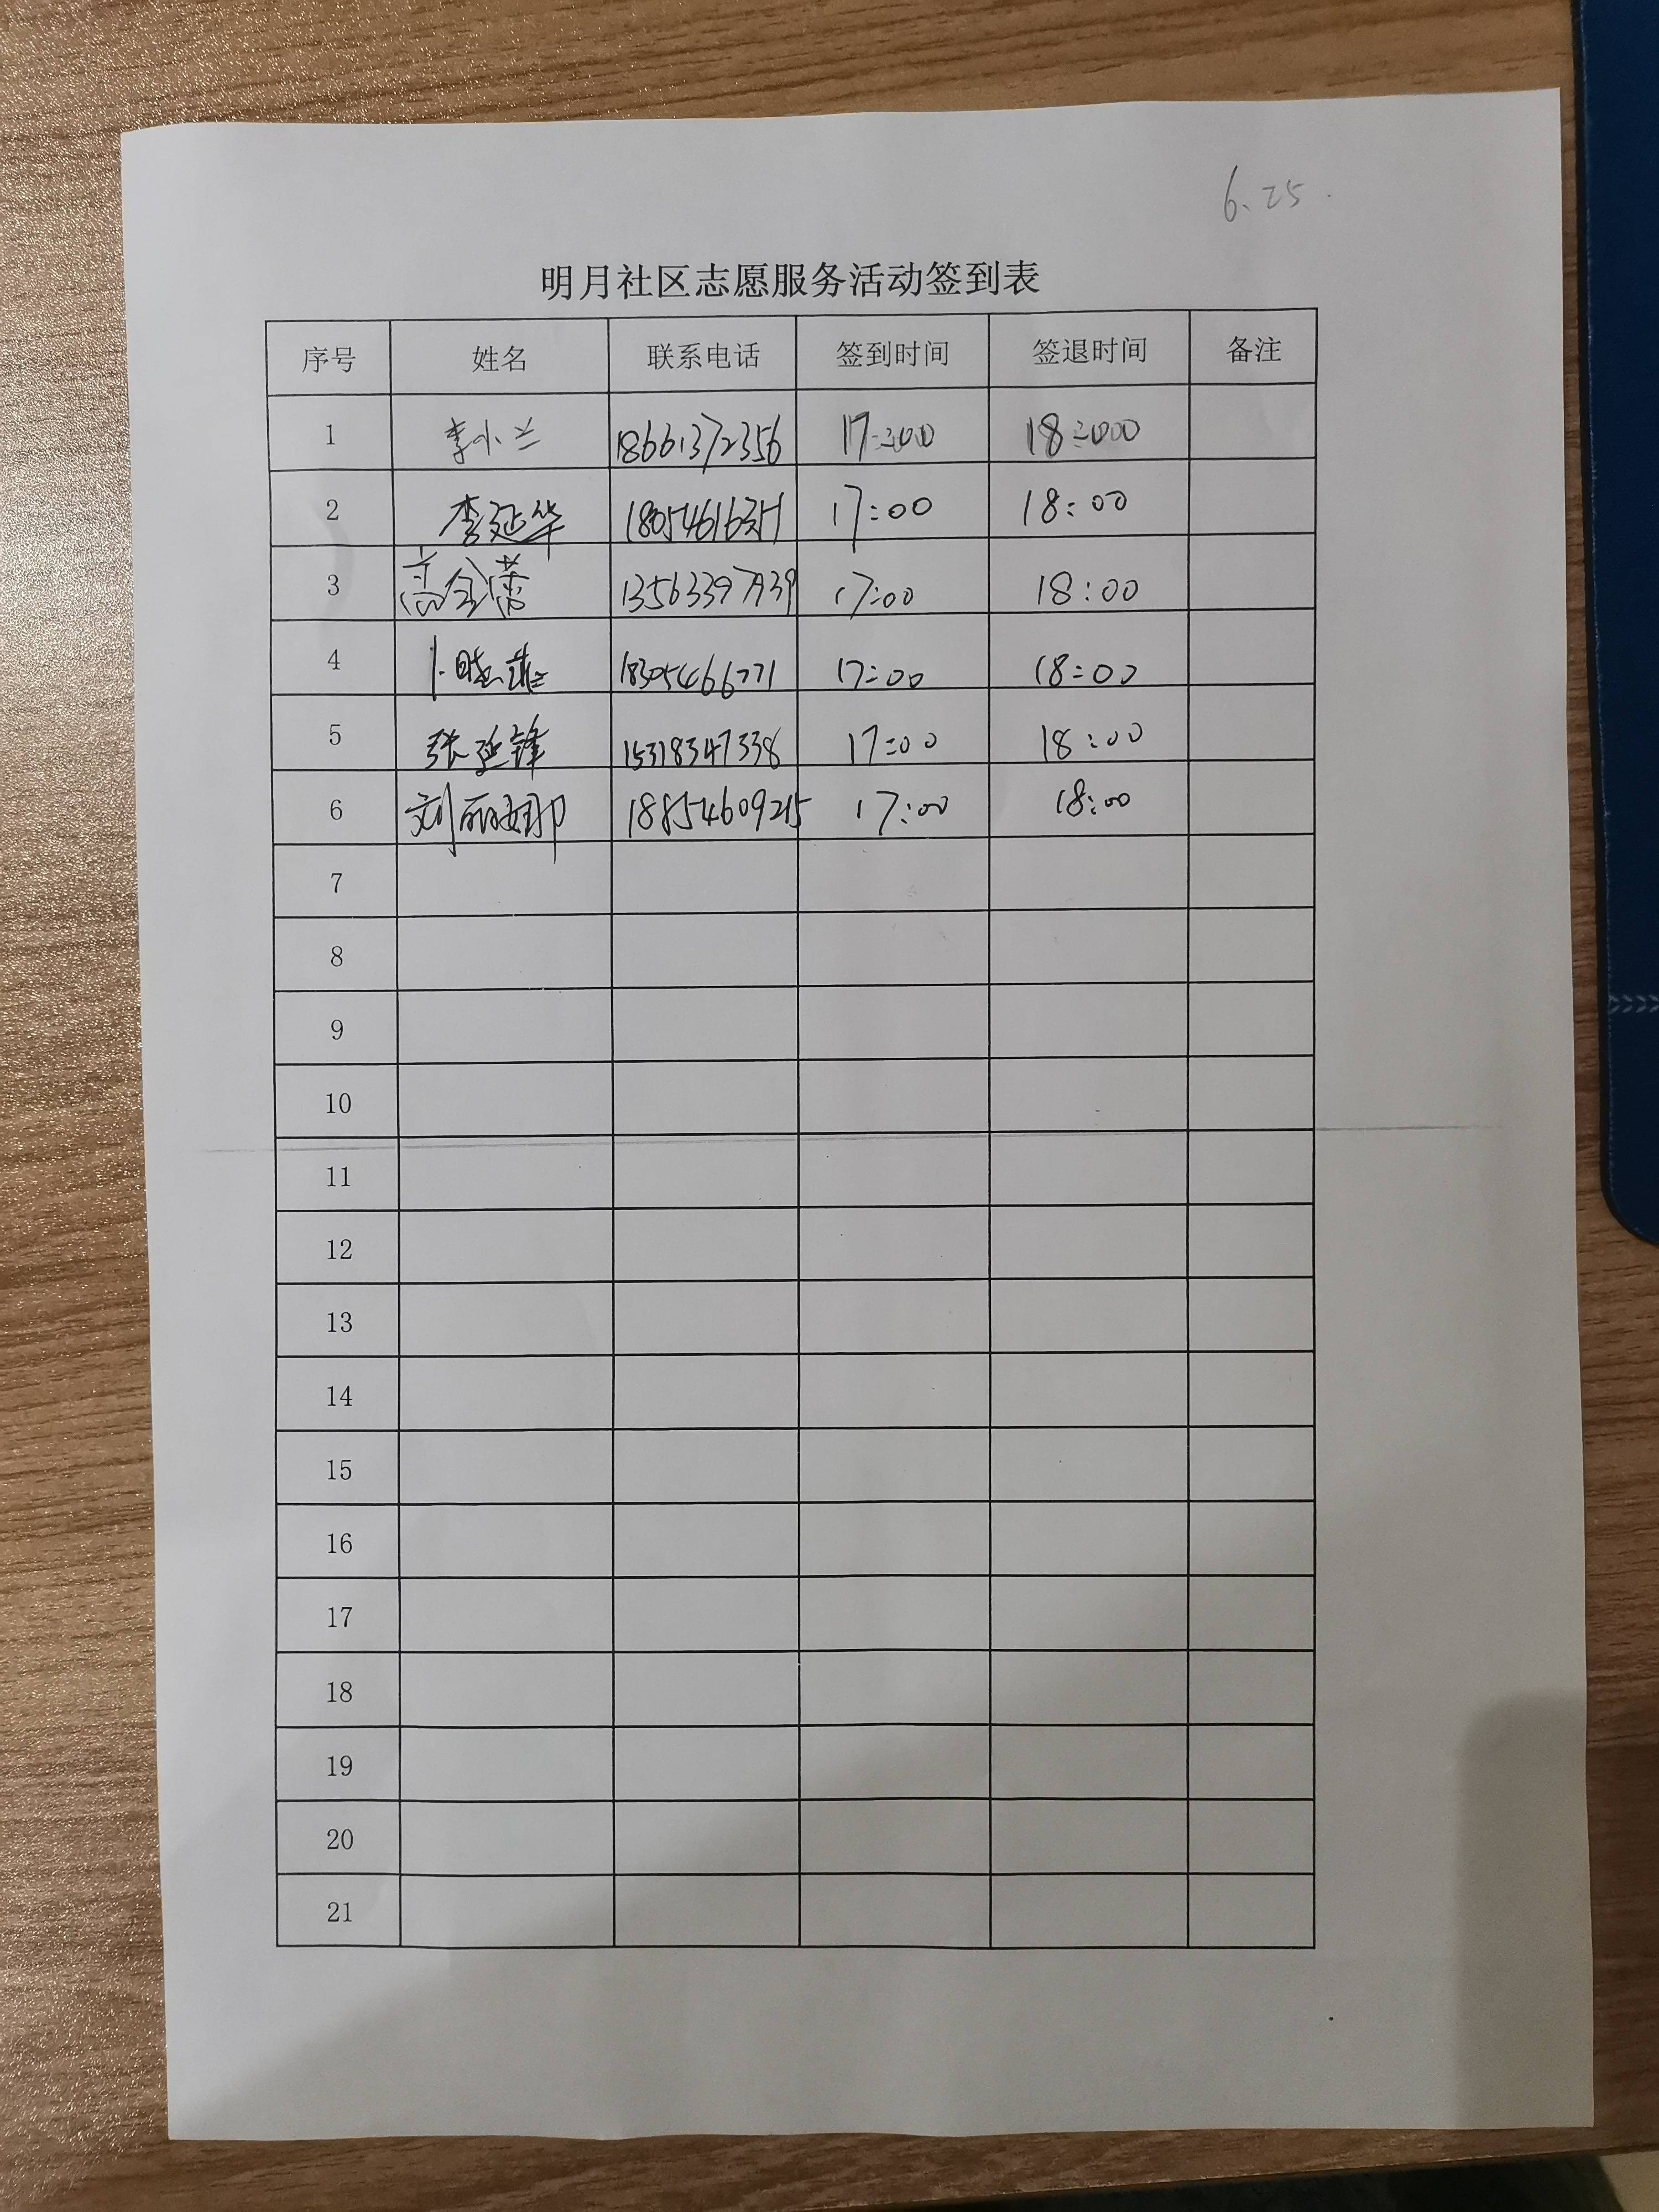 6.25.
明月社区志愿服务活动签到表
序号 姓名 联系电话 签到时间 签退时间 备注
1 李小兰 18661372356 17:00 18:00
2 李延华 17:00 18:00
3 高金蕾 13563397939 17:00 18:00
4 卜晓菲 18305466771 17:00 18:00
5 张延锋 15318347338 17:00 18:00
6 刘丽娜 18854609215 17:00 18:00
7
8
9
10
11
12
13
14
15
16
17
18
19
20
21